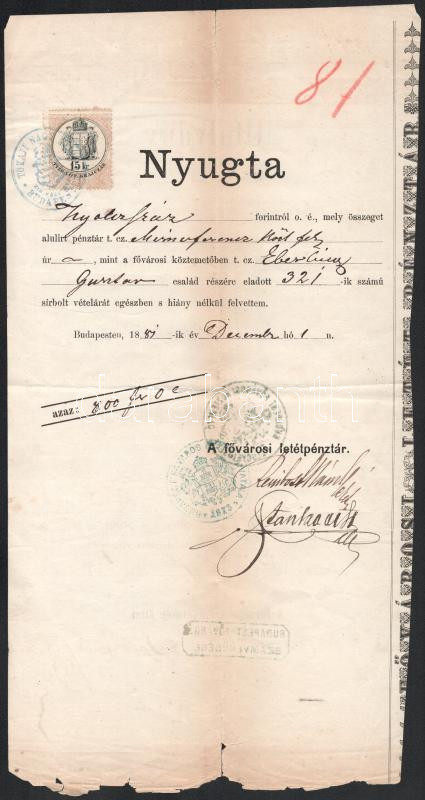 81
15 k
Nyugta
Nyolczszáz forintról o. é., mely összeget
alulirt pénztár t. cz.
úr, mint a fővárosi köztemetőben t. cz. Eberling
Gusztáv család részére eladott 321-ik számú
sírbolt vételárát egészben s hiány nélkül felvettem.
Budapesten, 1881-ik év Decembr hó 1 n.
azaz: 800 fr
A fővárosi letétpénztár.
Stankovits
BUDAPEST FŐVÁROS
A FŐVÁROSI LETÉTPÉNZTÁR
darabanth